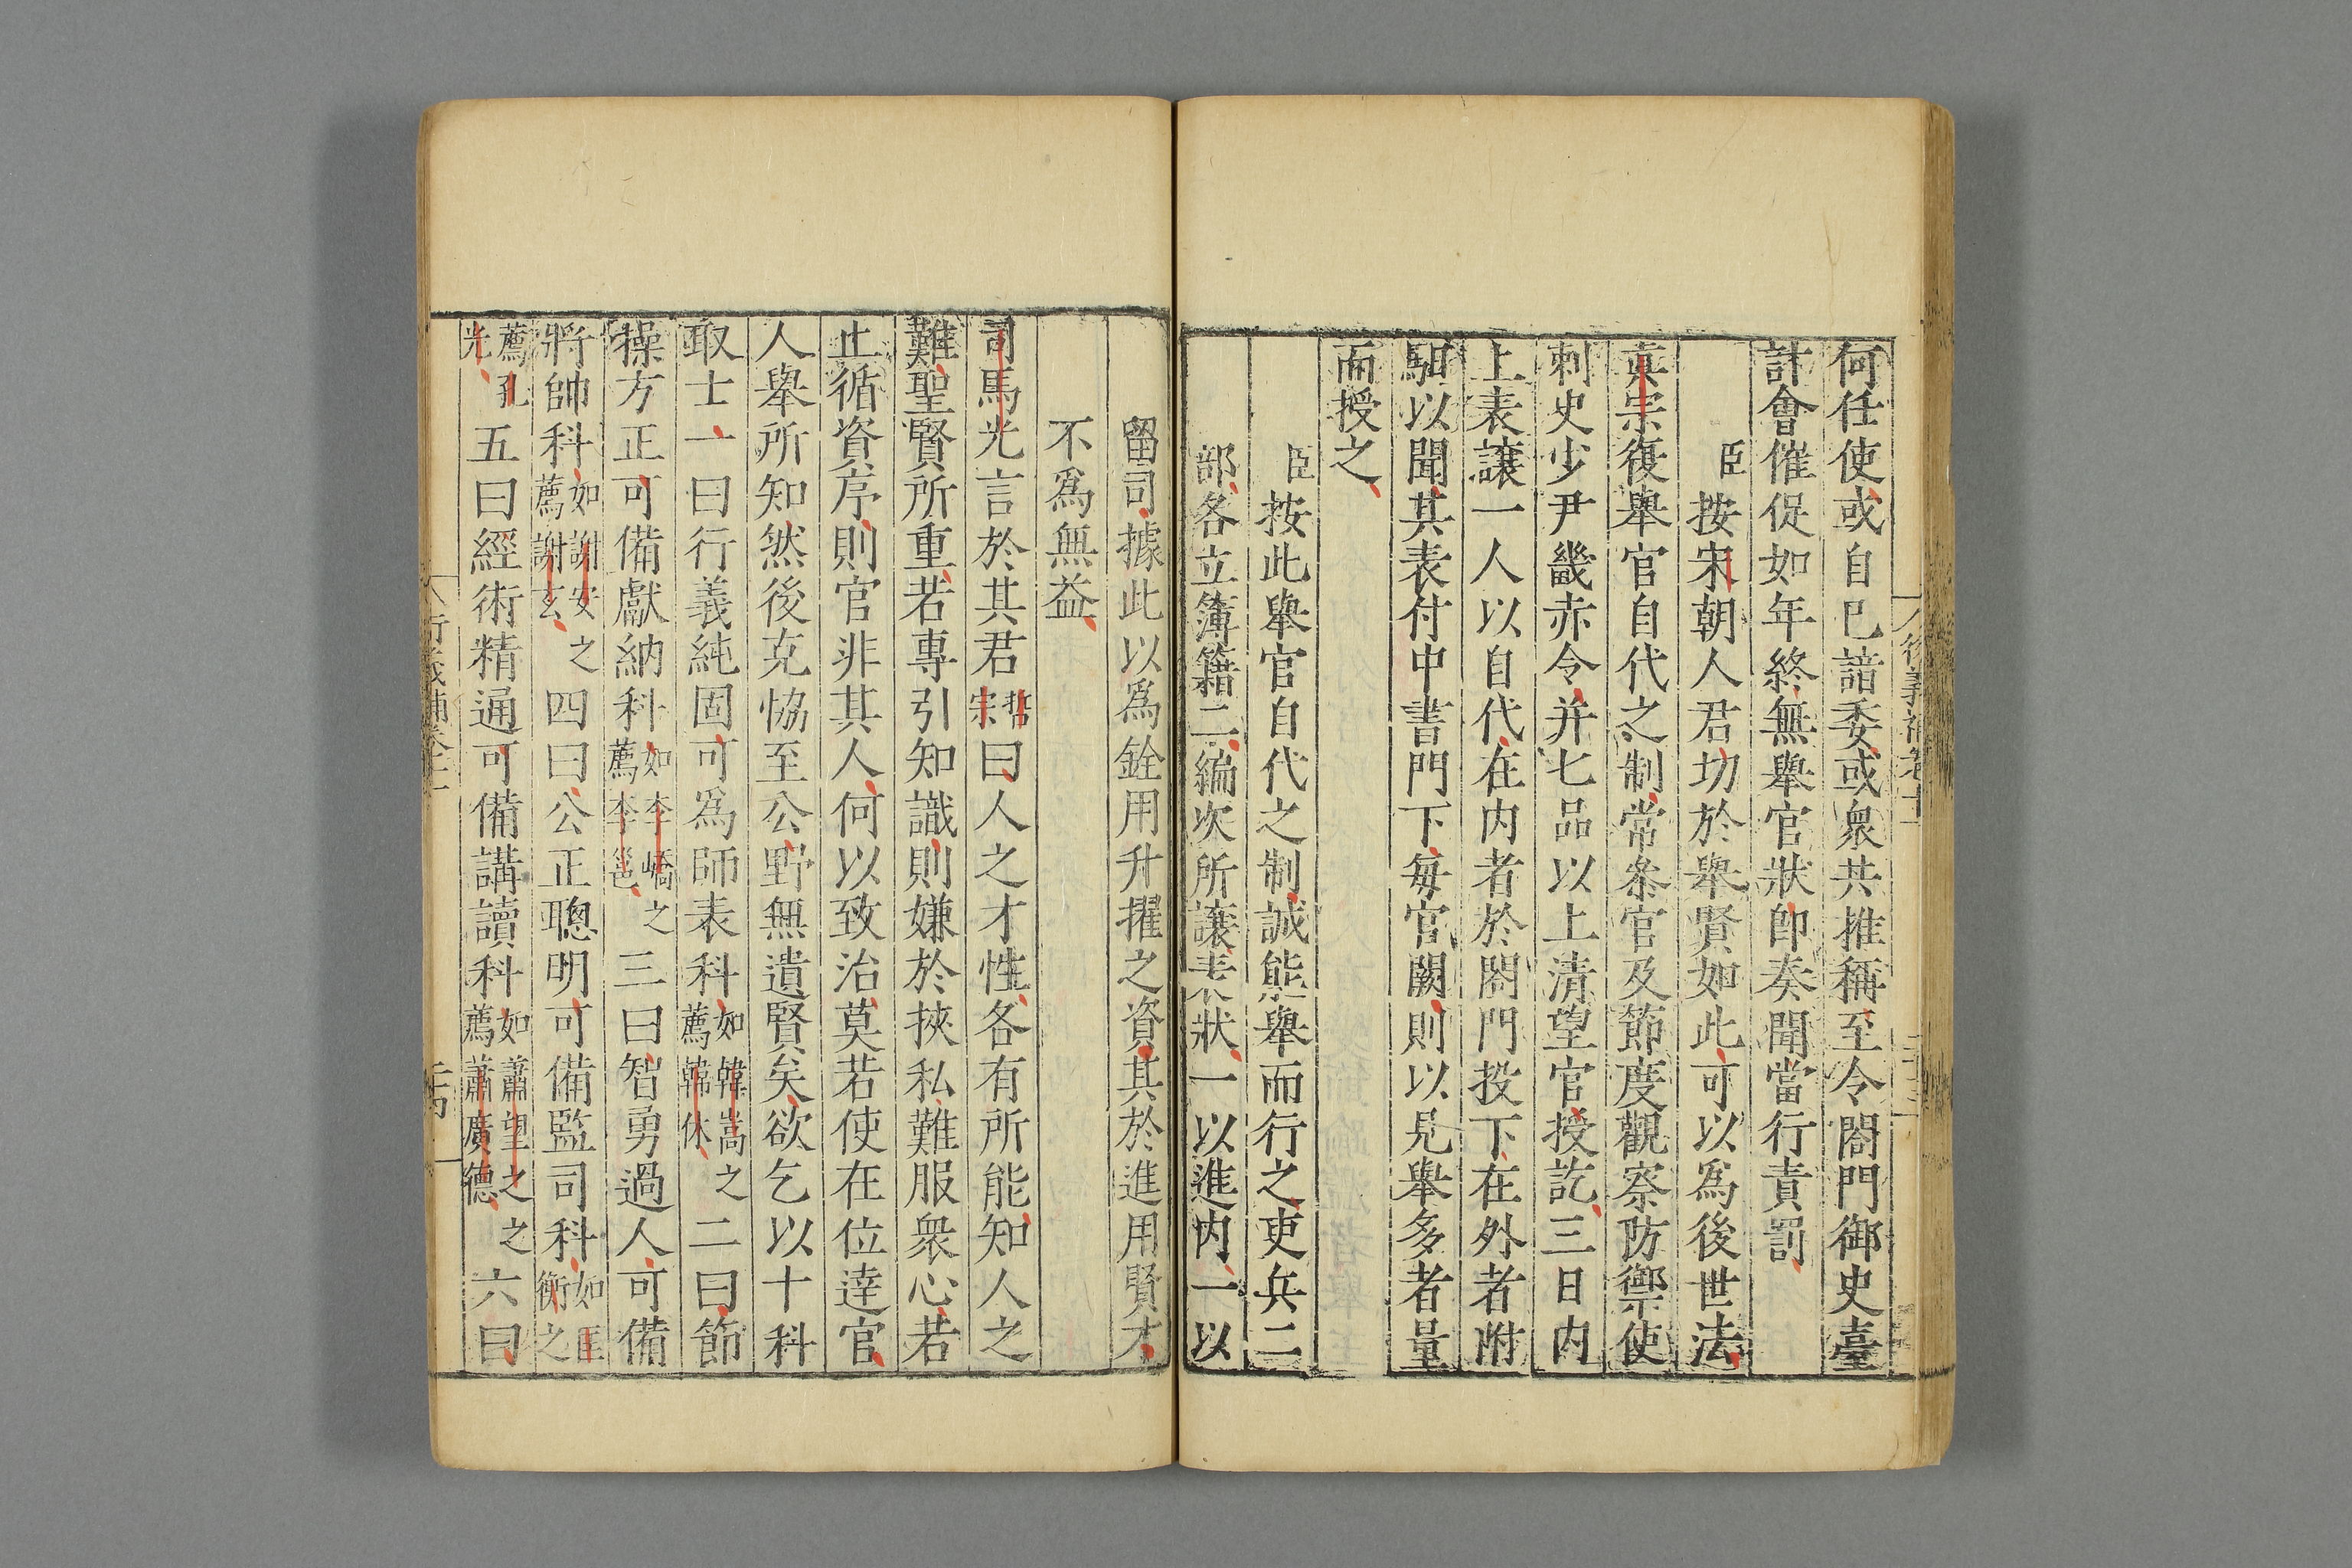 何任使或自巳諳委或衆共推稱至令閤門御史臺
計會催促如年終無舉官狀即奏聞當行責罰
臣按宋朝人君切於舉賢如此可以爲後世法
真宗復舉官自代之制常叅官及節度觀察防禦使
刺史少尹畿赤令并七品以上清望官授訖三日内
上表讓一人以自代在内者於閤門投下在外者附
馹以聞其表付中書門下每官闕則以見舉多者量
而授之
臣按此舉官自代之制誠能舉而行之吏兵二
部各立簿籍二編次所讓表狀一以進内一以
留司據此以爲銓用升擢之資其於進用賢才
不爲無益
司馬光言於其君哲宗曰人之才性各有所能知人之
難聖賢所重若專引知識則嫌於挾私難服衆心若
止循資序則官非其人何以致治莫若使在位達官
人舉所知然後克恊至公野無遺賢矣欲乞以十科
取士一曰行義純固可爲師表科如韓嵩之薦韓休二曰節
操方正可備獻納科如李嶠之薦李邕三曰智勇過人可備
將帥科如謝安之薦謝玄四曰公正聰明可備監司科如匡衡之
薦孔光五曰經術精通可備講讀科如蕭望之之薦蕭廣德六曰